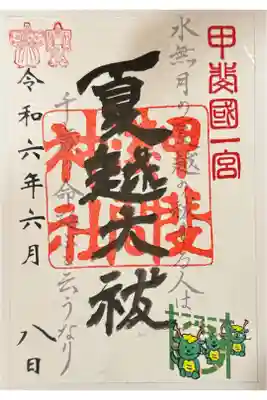 甲斐國一宮
水無月の夏越の祓する人は
夏越大祓
甲斐
神社
千歳の命のぶと云うなり
令和六年六月 八日